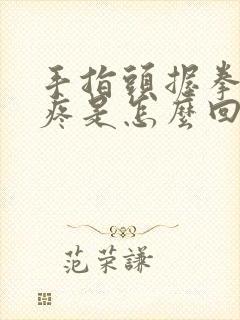 手指頭握拳
疼是怎麼回
范荣謙